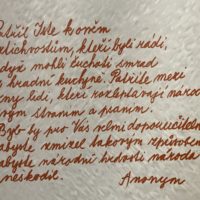 Patřil Jste k oněm
patlichvostům, kteří byli rádi,
když mohli čuchati smrad
z hradní kuchyně. Patříte mezi
ony lidi, kteří rozleptávají národ
svým stranam a psaním.
Bylo by pro Vás velmi doporučitelno
abyste zmizel takovým způsobem
abyste národní hrdosti národa
neškodil.
Anonym